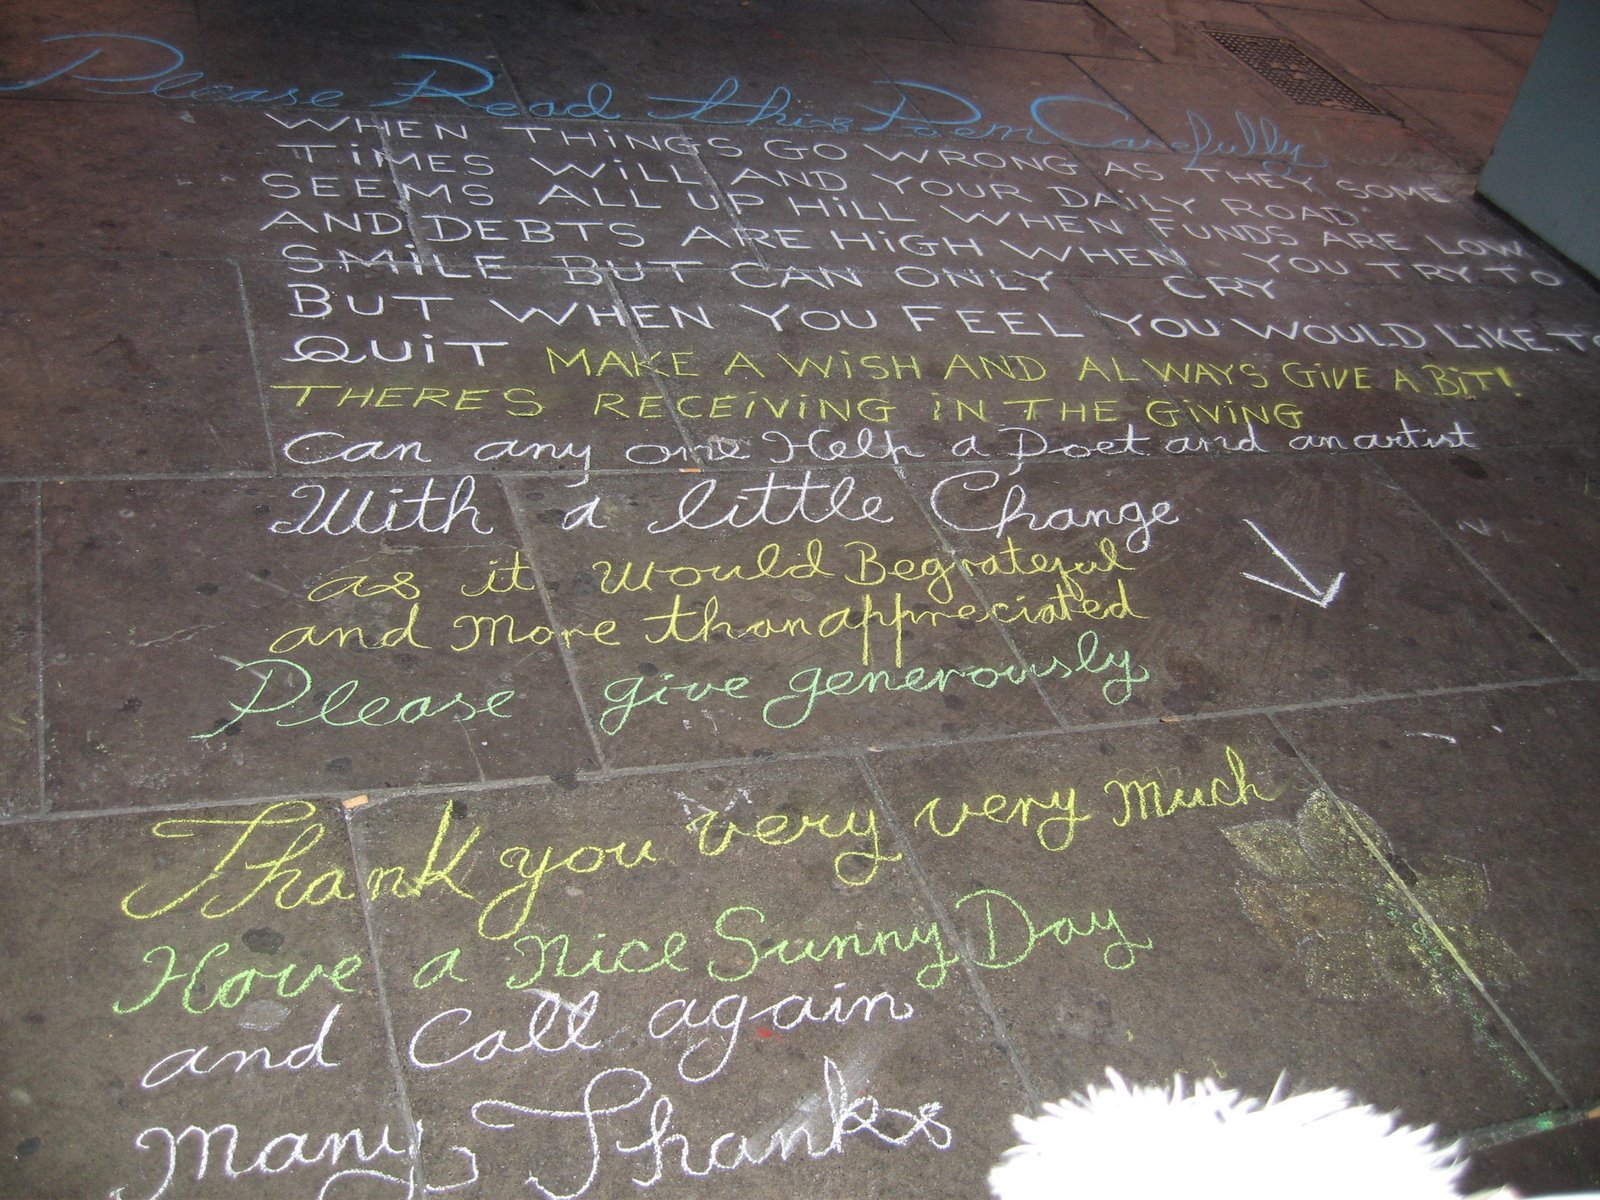 Please Read this Poem Carefully
WHEN THINGS GO WRONG AS THEY SOME
TIMES WILL AND YOUR DAILY ROAD
SEEMS ALL UP HILL WHEN FUNDS ARE LOW
AND DEBTS ARE HIGH WHEN YOU TRY TO
SMILE BUT CAN ONLY CRY
BUT WHEN YOU FEEL YOU WOULD LIKE TO
QUIT MAKE A WISH AND ALWAYS GIVE A BIT!
THERES RECEIVING IN THE GIVING
Can any one Help a Poet and an artist
With a little Change
as it would Be grateful
and more than appreciated
Please give generously
Thank you very very much
Have a nice Sunny Day
and Call again
Many Thanks